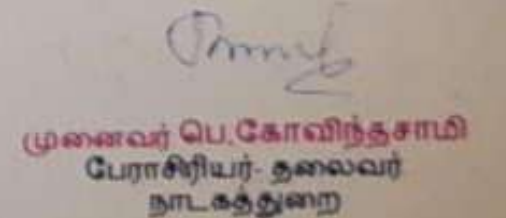 முனைவர் பெ.கோவிந்தசாமி
பேராசிரியர்- தலைவர்
நாடகத்துறை